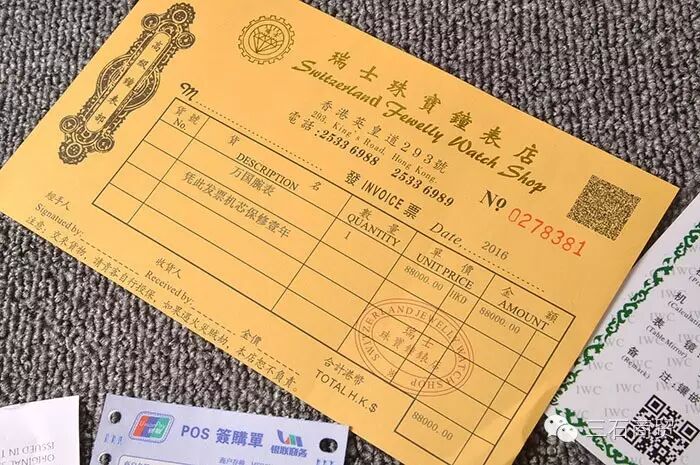 高級鐘表部
瑞士珠寶鐘表店
Switzerland Jewelly Watch Shop
香港英皇道293號
293, King's Road, Hong Kong
電話:2533 6988 2533 6989
M
發 INVOICE 票
Nº 0278381
Date 2016
貨號 No.
貨 DESCRIPTION 名
數量 QUANTITY
單價 UNIT PRICE
金額 AMOUNT
万国腕表
1
88000.00 HKD
88000.00
凭此发票机芯保修壹年
SWITZERLAND JEWELLY WATCH SHOP
瑞士
珠寶鐘錶店
合計港幣
TOTAL H.K.$
88000.00
經手人
Signatued by:
收貨人
Received by:
金價
注意:文来貨物,請貴客自行投保,如果遇火災賊劫,本店恕不負責。
POS 簽購單
银联商务
UnionPay
ORIGINAL
ISSUED IN T
IWC
IWC
IWC
机
表镜
备注
镶嵌
(Remark)
三石